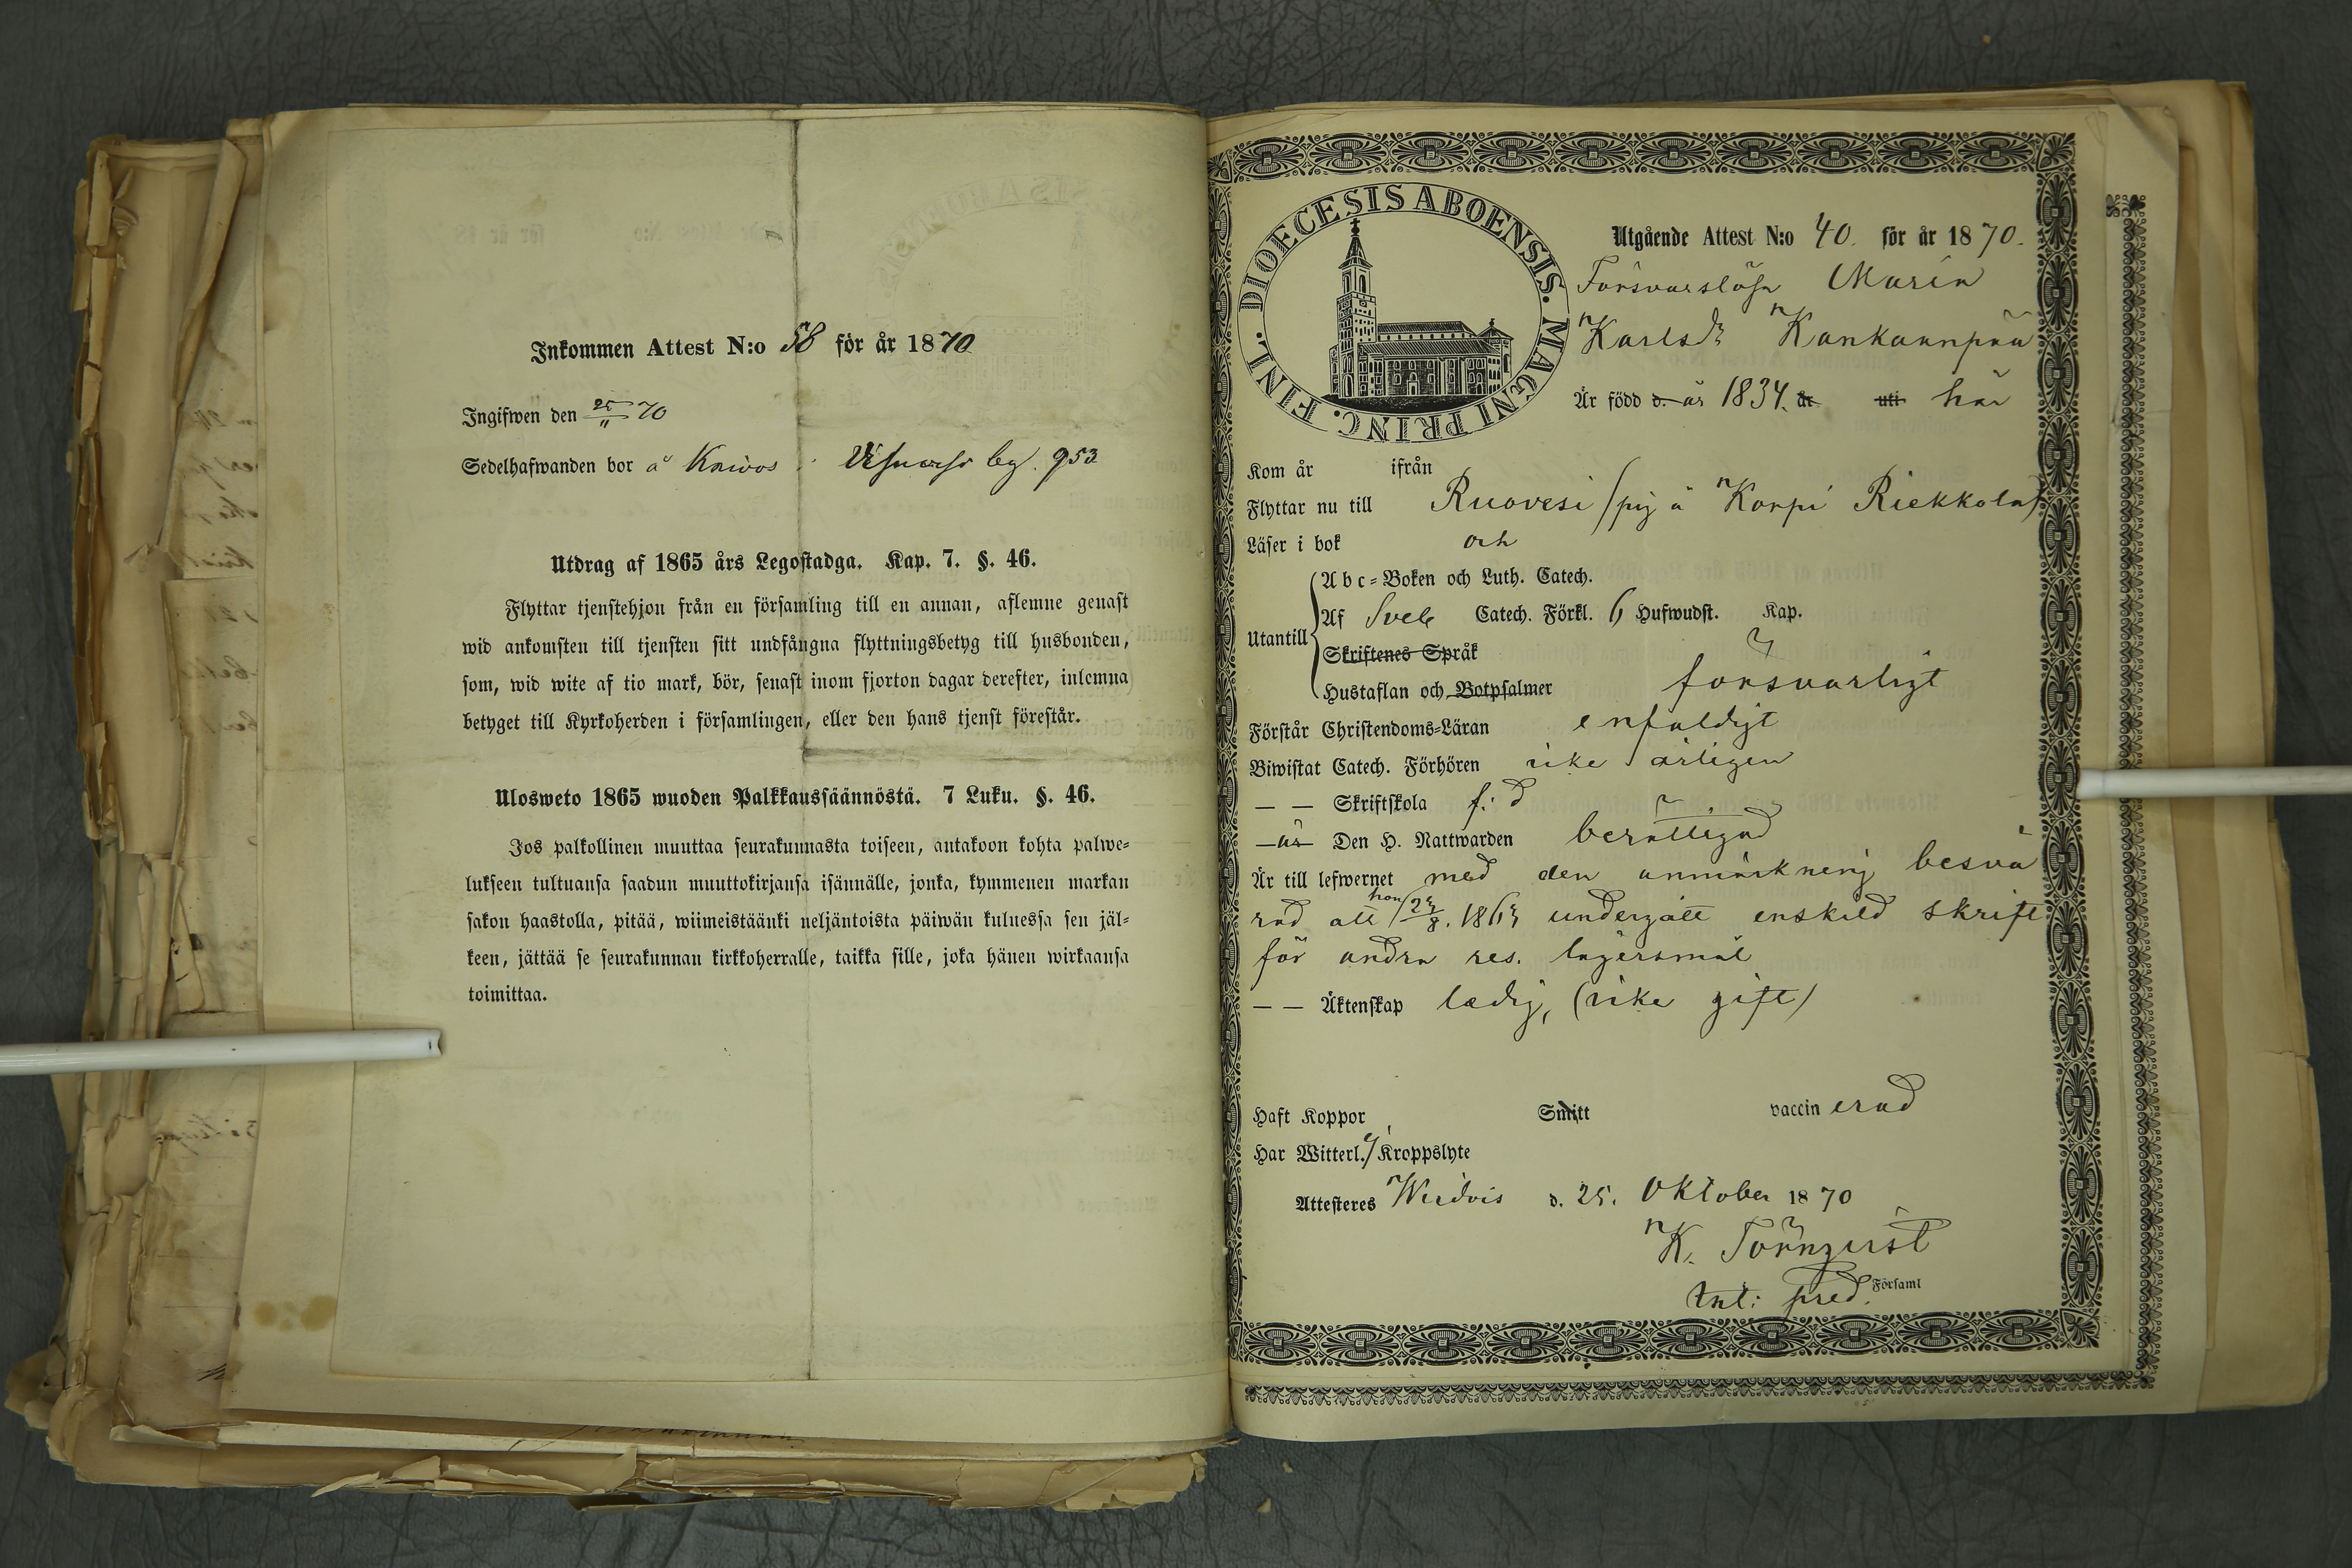 Inkommen Attest N:o 58 för år 1870
Ingifwen den 25/11 70
Sedelhafwanden bor å Kaivos i Visuvesi bg. 953
Utdrag af 1865 års Legostadga. Kap. 7. §. 46.
Flyttar tjenstehjon från en församling till en annan, aflemne genast
wid ankomsten till tjensten sitt undfångna flyttningsbetyg till husbonden,
som, wid wite af tio mark, bör, senast inom fjorton dagar derefter, inlemna
betyget till Kyrkoherden i församlingen, eller den hans tjenst förestår.
Ulosweto 1865 wuoden Palkkaussäännöstä. 7 Luku. §. 46.
Jos palkollinen muuttaa seurakunnasta toiseen, antakoon kohta palwe-
lukseen tultuansa saadun muuttokirjansa isännälle, jonka, kymmenen markan
sakon haastolla, pitää, wiimeistäänki neljäntoista päiwän kuluessa sen jäl-
keen, jättää se seurakunnan kirkkoherralle, taikka sille, joka hänen wirkaansa
toimittaa.
DIOECESIS ABOENSIS. MAGNI PRINC. FINL.
Utgående Attest N:o 40. för år 1870.
Försvarslösa Maria
Karlsdr Kankaanpää
Är född d. år 1834. år uti här
Kom år ifrån
Flyttar nu till Ruovesi (pig å Korpi Riekkola)
Läser i bok och
Utantill
Abc-Boken och Luth. Catech.
Af Sveb Catech. Förkl. 6 Hufwudst. Kap.
Skriftenes Språk
Hustaflan och Botpsalmer försvarligt
Förstår Christendoms-Läran enfaldigt
Biwistat Catech. Förhören icke årligen
— — Skriftskola f. d
— är Den H. Nattwarden berättigad
Är till lefwernet med den anmärkning besvä
rad att hon 1863 undergått enskild skrift
för andra res. lägersmål
— — Äktenskap ledig, (icke gift)
Haft Koppor Smitt vaccinerad
Har Witterl. ej Kroppslyte
Attesteres Wirdois d. 25. Oktober 1870
K. Törnqvist
pred. Församl